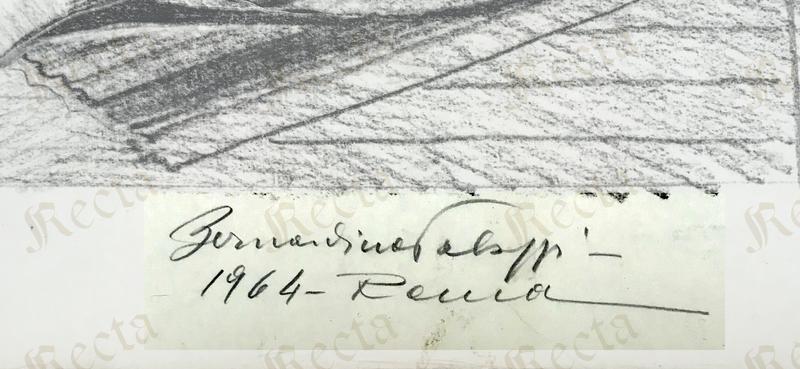 Recta Recta Recta
Recta Recta Recta Recta
Bernardino Palazzi –
1964 – Roma
Recta Recta Recta Recta